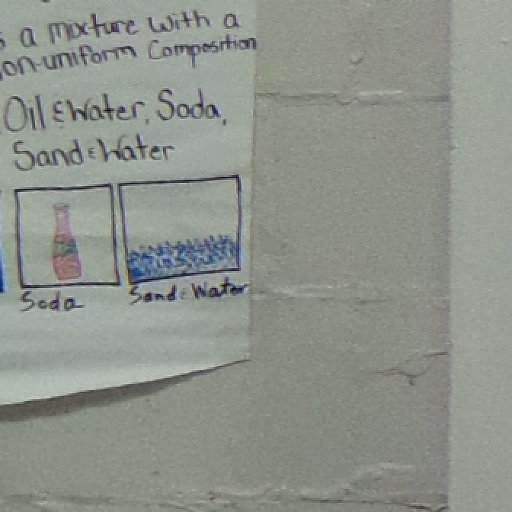 a mixture with a
on-uniform Composition
Oil & Water, Soda,
Sand & Water
Soda
Sand & Water